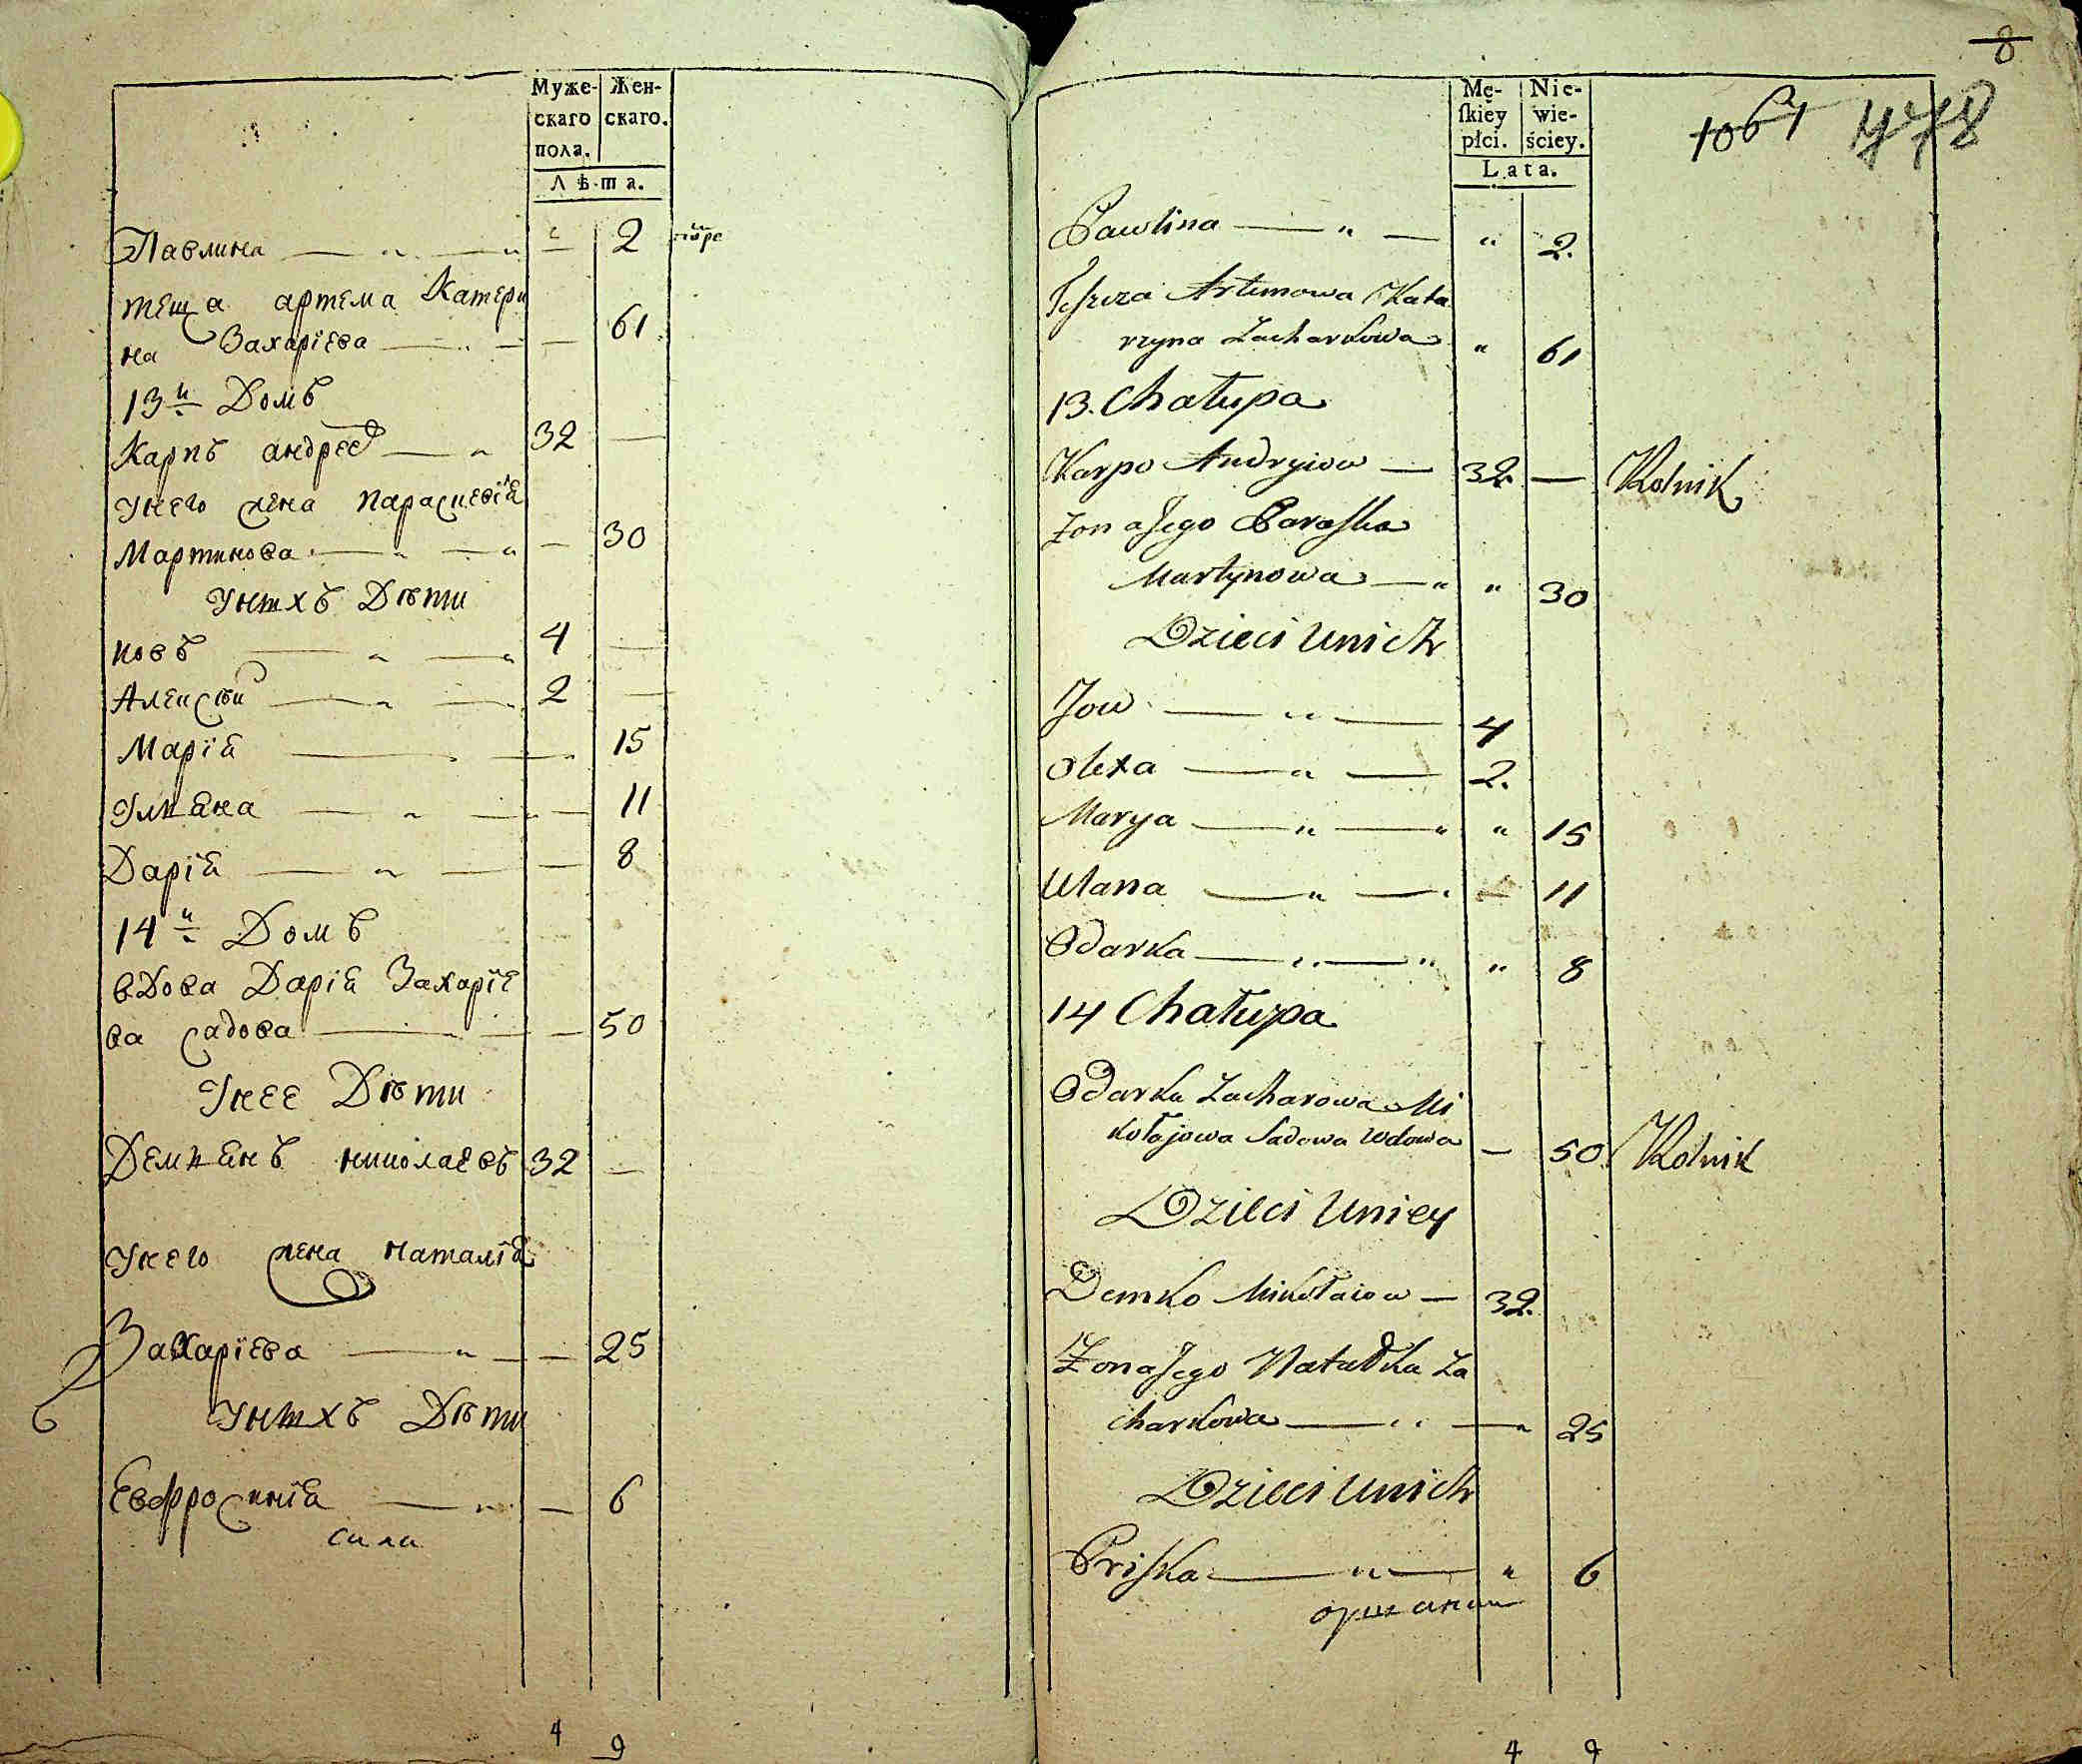 Муже-
скаго
пола.
Жен-
скаго.
Лѣта.
Павлина — „ — „ — 2
теща артема Катери
на Захарїева — „ — — 61
13й Домъ
Карпъ андреев — „ 32 —
Унего жена параскевїѧ
Мартинова — „ — „ — 30
Унихъ Дѣти
иовъ — „ — „ 4 —
Алексѣй — „ — 2 —
Марїѧ — — 15
Улиѧна — „ — — 11
Дарїѧ — „ — — 8
14й Домъ
вдова Дарїѧ Захарїе
ва садова — — 50
Унее Дѣти
Демиѧнъ николаевъ 32 —
Унего жена наталїѧ
Захарїева — „ — — 25
Унихъ Дѣти
Евфросинїѧ — „ — 6
сила
4 9
8
1061 778
Mę-
ſkiey
płci.
Nie-
wie-
ściey.
Lata.
Pawlina — „ — „ 2.
Teszcza Artemowa Kata
rzyna Zacharkowa „ 61
13. Chałupa
Karpo Andryiow — 32. — Rolnik
Żona Jego Paraſka
Martynowa — „ „ 30
Dzieci Unich
Jow — „ — 4
Olexa — „ — 2.
Marya — „ — „ „ 15
Ulana — „ — „ 11
Odarka — „ — „ „ 8
14 Chałupa
Odarka Zacharowa Mi
kołajowa Sadowa wdowa — 50. Rolnik
Dzieci Uniey
Demko Mikołaiow — 32.
Żona Jego Natalka Za
charkowa — „ — „ 25
Dzieci Unich
Priſka — „ — „ 6
4 9